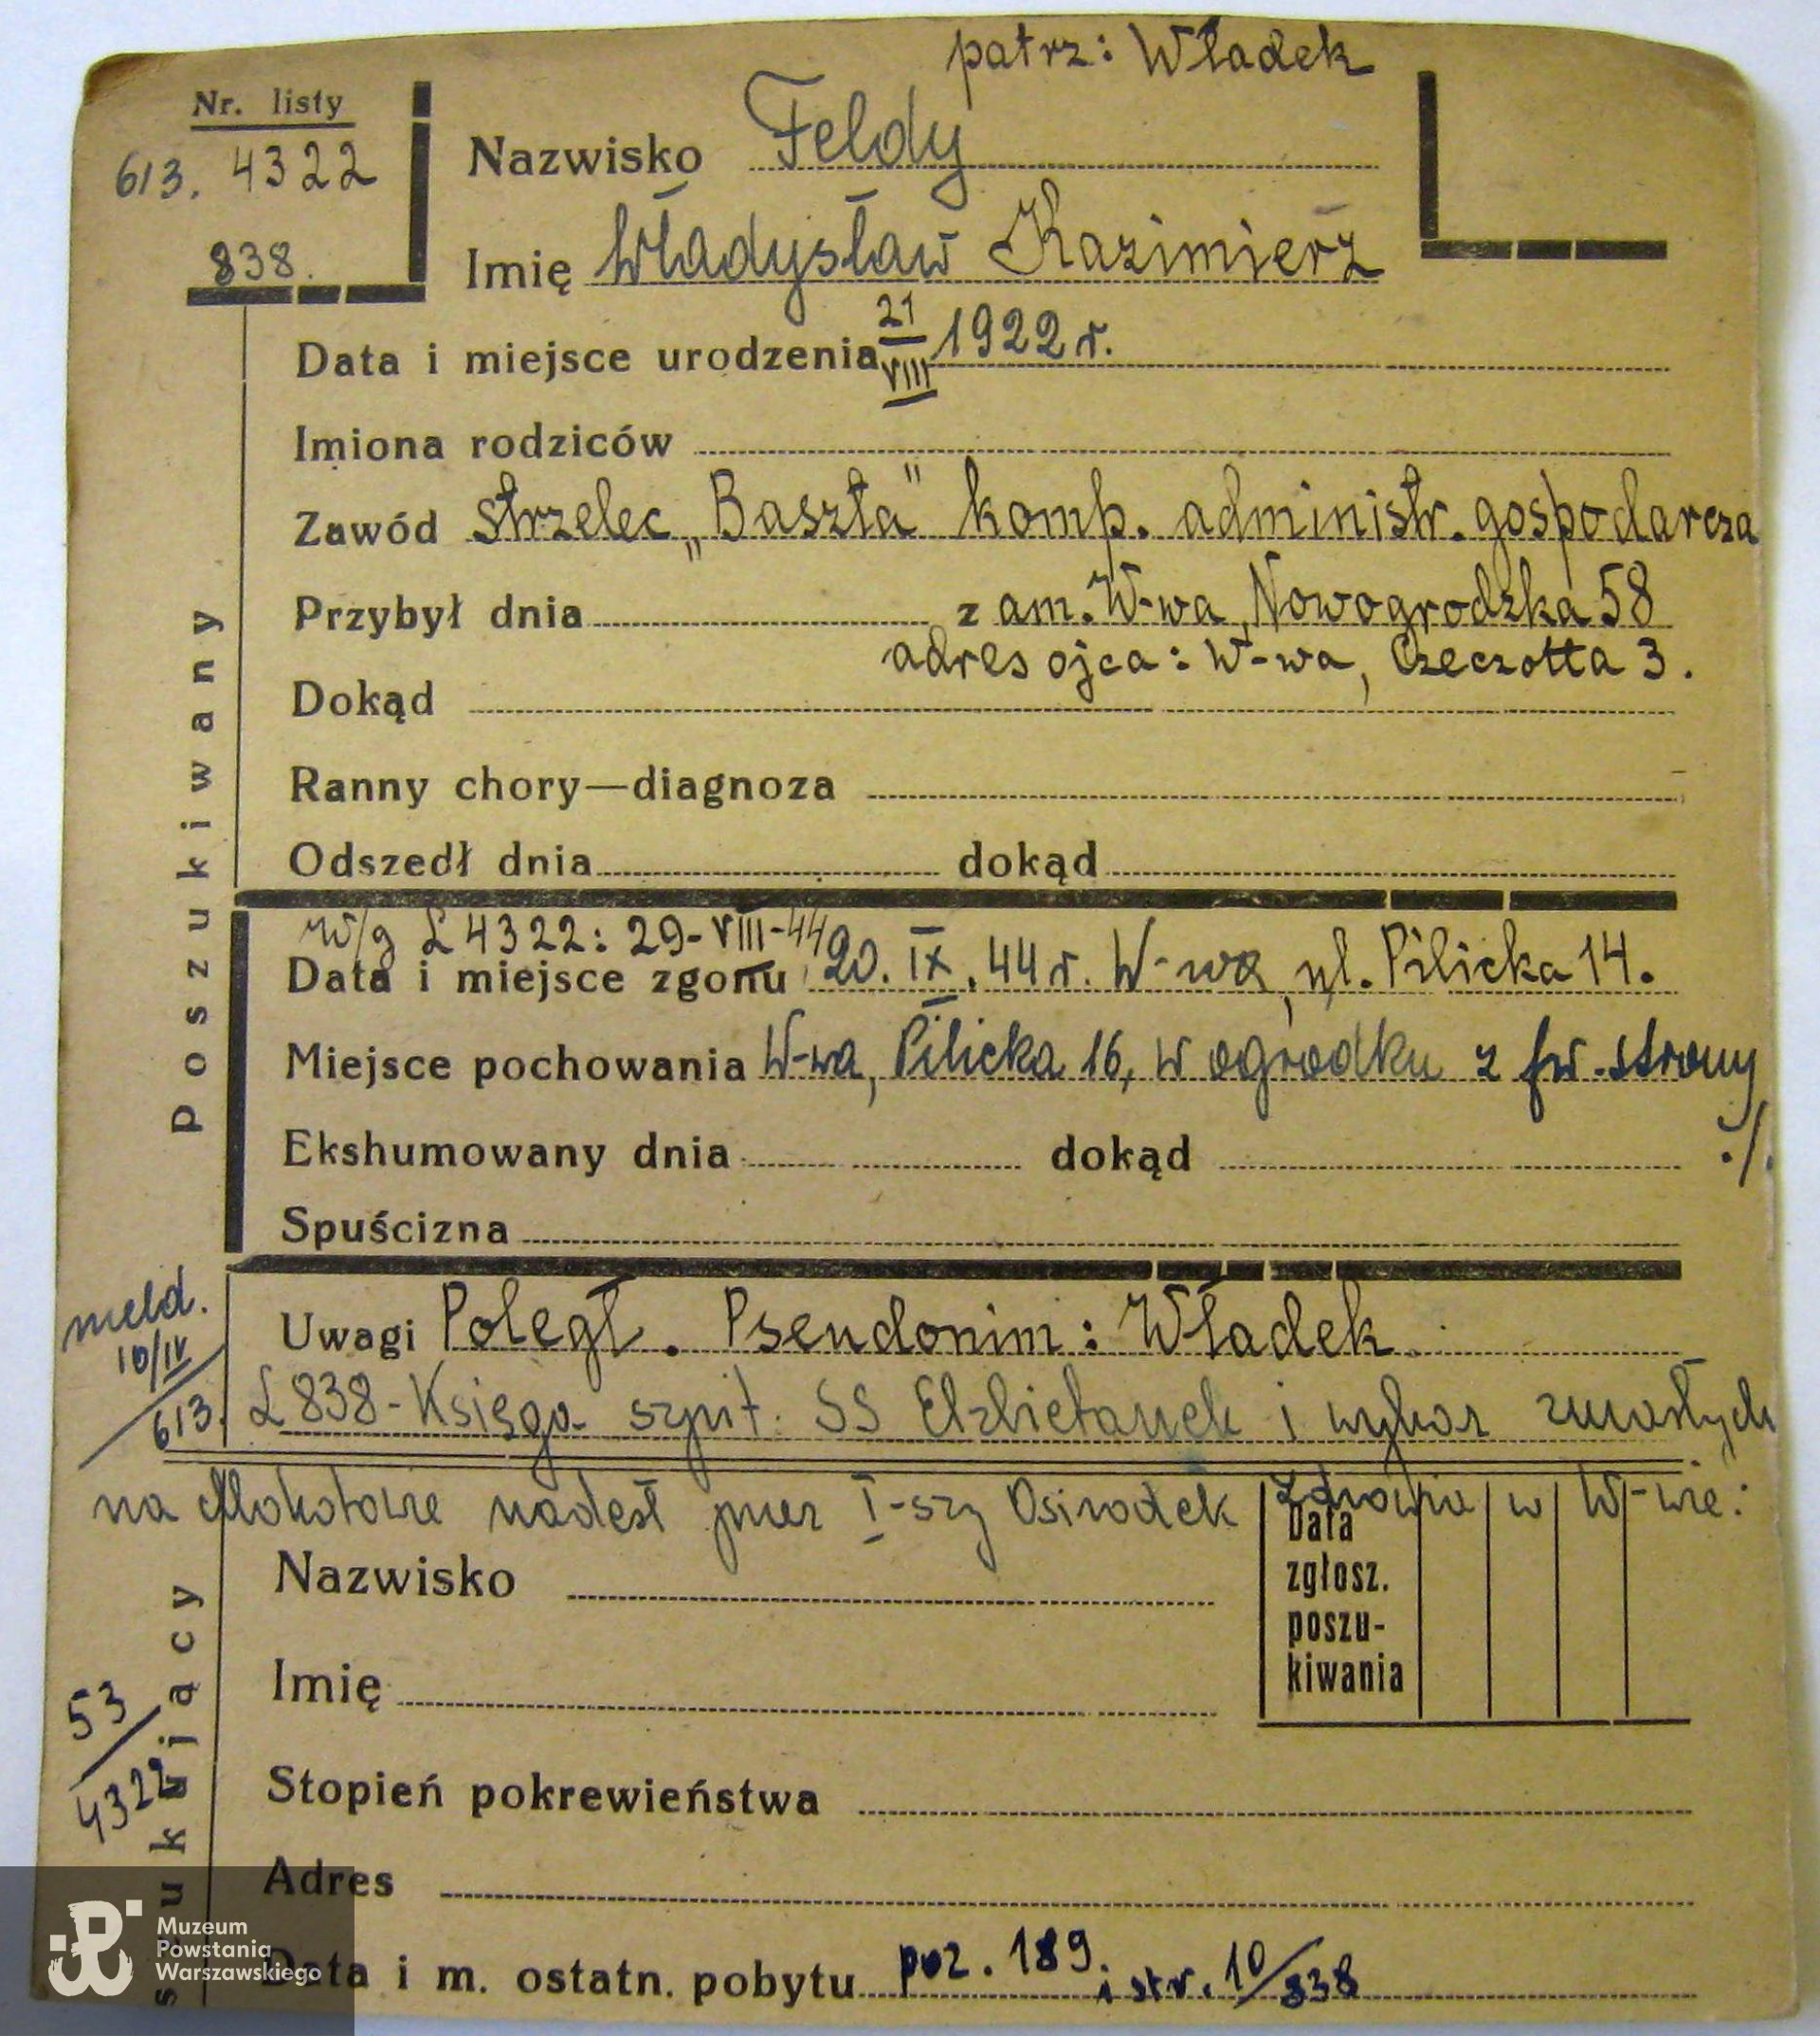 patrz: Władek
Nr. listy
613. 4322
838.
Nazwisko Feldy
Imię Władysław Kazimierz
Data i miejsce urodzenia 21/VIII 1922 r.
Imiona rodziców
Zawód strzelec „Baszta" komp. administr. gospodarcza
Przybył dnia z am. W-wa, Nowogrodzka 58
adres ojca: W-wa, Czeczotta 3.
Dokąd
Ranny chory—diagnoza
Odszedł dnia dokąd
Poszukiwany
w/g Ł 4322: 29-VIII-44
Data i miejsce zgonu 20. IX. 44 r. W-wa, ul. Pilicka 14.
Miejsce pochowania W-wa, Pilicka 16, w ogródku z fr. strony
./.
Ekshumowany dnia dokąd
Spuścizna
meld.
10/IV
613.
Uwagi Poległ. Pseudonim: Władek.
Ł 838-Księga szpit. SS Elżbietanek i wykaz zmarłych
na Mokotowie nadesł przez I-szy Ośrodek Zdrowia w W-wie:
Nazwisko
Data
zgłosz.
poszu-
kiwania
Imię
53
4322
Stopień pokrewieństwa
Adres
Data i m. ostatn. pobytu poz. 189. i str. 10/838
Muzeum
Powstania
Warszawskiego